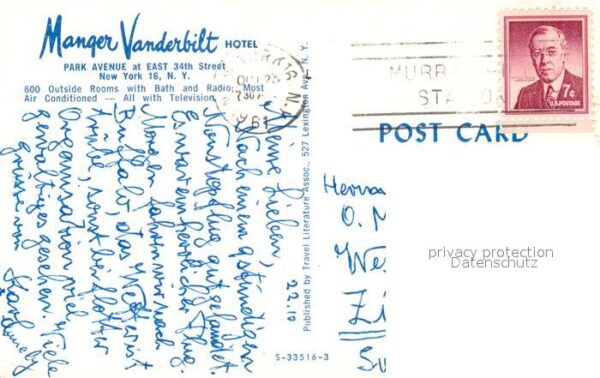 Manger Vanderbilt HOTEL
PARK AVENUE at EAST 34th Street
New York 16, N. Y.
600 Outside Rooms with Bath and Radio; Most
Air Conditioned — All with Television
OCT 23
730 PM
1961
MURR
STA ON
7¢
U.S. POSTAGE
POST CARD
Meine Lieben,
Nach einem 9 stündigen
Nonstopflug gut gelandet.
Es war ein herrlicher Flug.
Morgen fahren wir nach
Buffalo, das Wetter ist
sonst
Organisation viel
gewaltiges gesehen. Viele
Grüsse von Karl
22.10
Published by Travel Literature Assoc., 527 Lexington Ave., N. Y.
S-33516-3
O.
We
Zü
privacy protection
Datenschutz